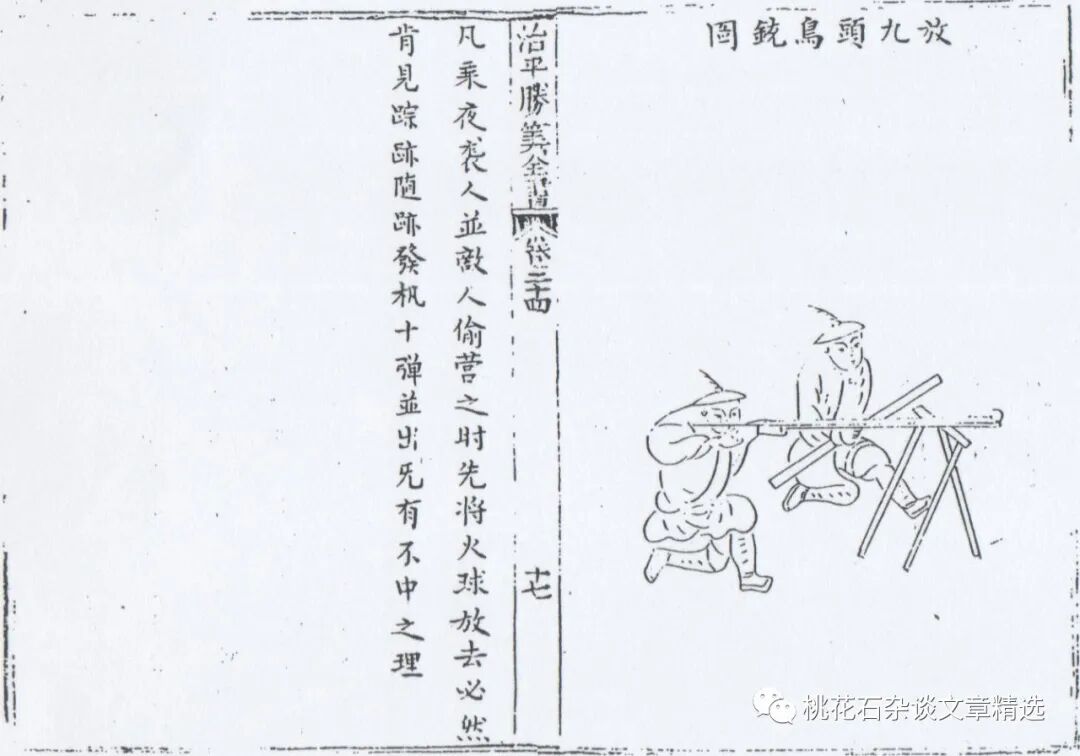 放九頭鳥銃圖
治平勝筭全書
卷二十四
十七
凡乘夜袭人並敵人偷营之时先将火球放去必然
肯見踪跡随跡發机十弹並出旡有不中之理
桃花石杂谈文章精选